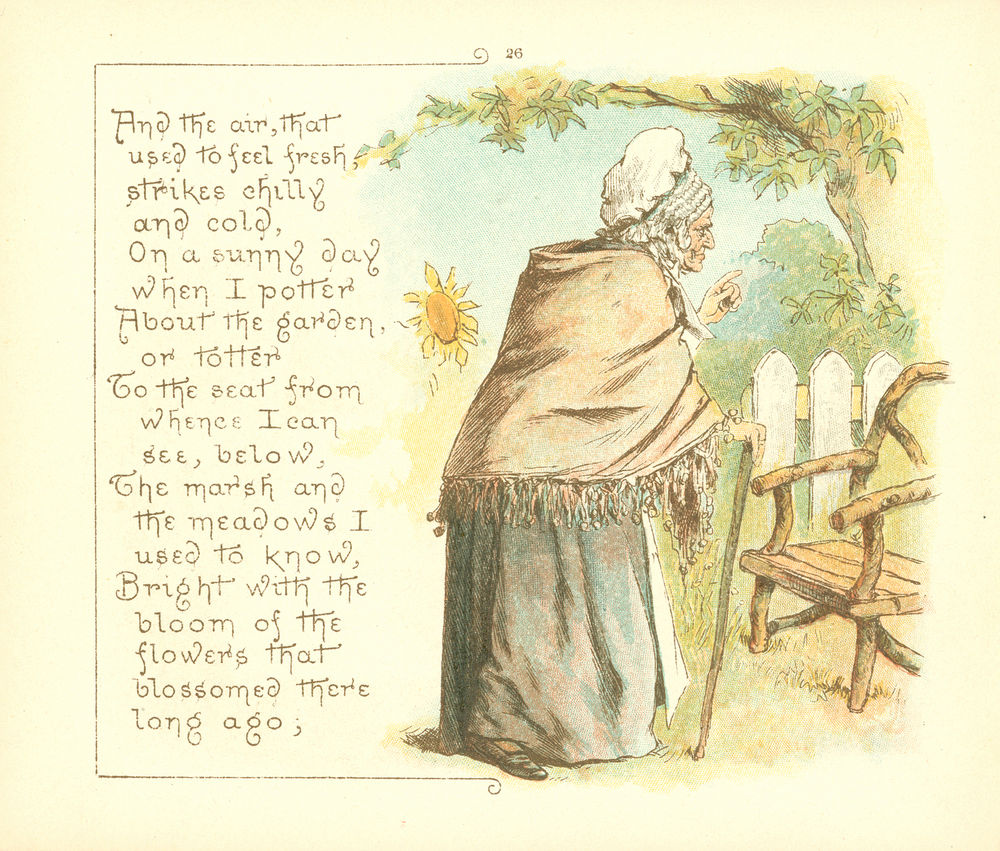 26
And the air, that
used to feel fresh,
strikes chilly
and cold,
On a sunny day
when I potter
About the garden,
or totter
To the seat from
whence I can
see, below,
The marsh and
the meadows I
used to know,
Bright with the
bloom of the
flowers that
blossomed there
long ago;